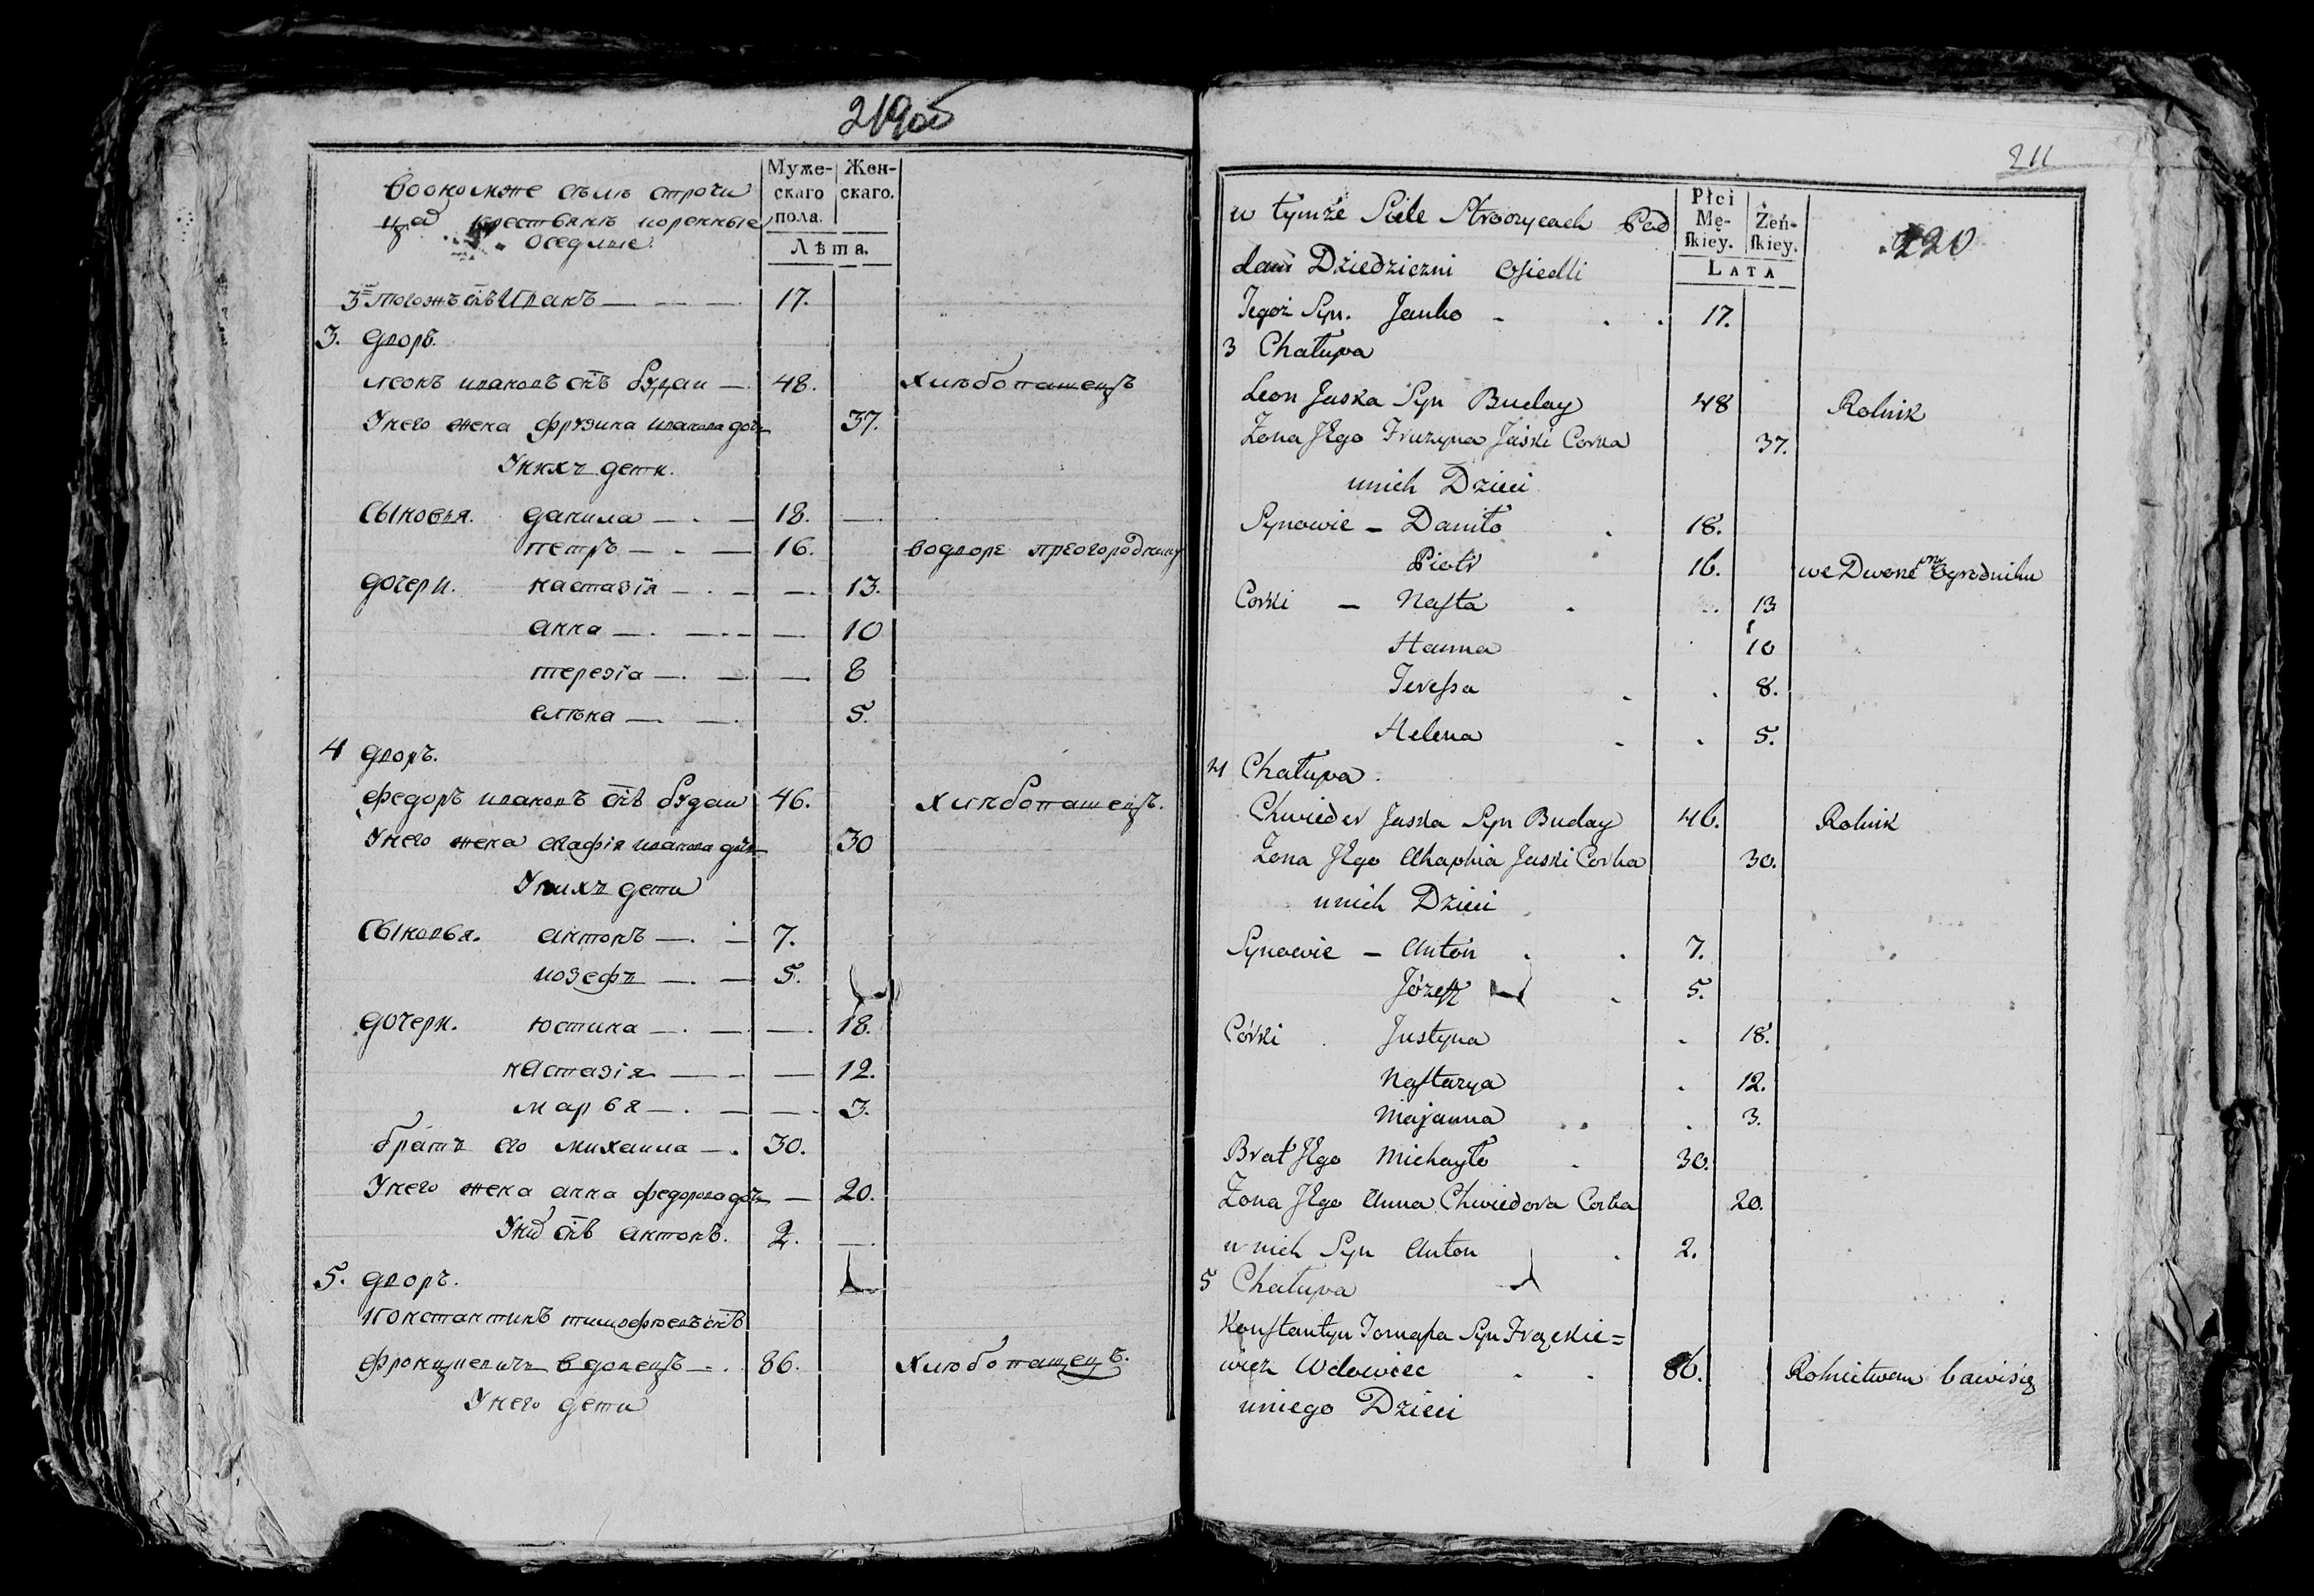 219об
Муже-
скаго
пола.
Жен-
скаго.
Лѣта.
воономже селѣ строчи
цад крестьянъ коренные
оседлые.
3й тогожъ снъ Ивакъ — — — 17.
3. дворъ.
Леонъ иваковъ снъ будаи — 48. хлѣбопашецъ
Унего жена фрузина ивакова дочь 37.
Унихъ дети.
Сыновья. данила — . — 18. — .
петръ — - — 16. водворе преогороднику
дочери. настазія — . — — . 13.
анна — . — . - — 10
терезія — . — . — . 8
елѣна — . — . 5.
4 дворъ.
федоръ иваковъ снъ будаи 46. хлѣбопашецъ.
Унего жена агафія ивакова дочь 30
Унихъ дети
Сыновья. антонъ — . — 7.
иозефъ — . — 5.
дочери. юстина — . — . — . 18.
настазія — — - — 12.
марья — . — — . 3.
братъ его михаила — . 30.
Унего жена анна федорова дочь — 20.
Уних снъ антонъ. 2. — .
5. дворъ.
Константинъ тимофѣевъ снъ
фронцкевичъ вдовецъ — . 86. хлѣбопашецъ.
Унего дети
211
220
Płci
Mę-
skiey.
Żeń-
skiey.
LATA
w tymże Siele Stroczycach Pod
dani Dziedziczni Osiedli
Tegoż Syn. Janko - . . 17.
3 Chałupa
Leon Jaska Syn Buday 48 Rolnik
Żona Jego Fruzyna Jaski Corka 37.
unich Dzieci
Synowie - Daniło . 18.
Piotr . 16. we Dworze przy Ogrodniku
Corki - Nasta . . 13
Hanna . 10
Teressa . . 8.
Helena . . 5.
4 Chałupa.
Chwieder Jaska Syn Buday 46. Rolnik
Żona Jego Ahaphia Jaski Corka 30.
unich Dzieci
Synowie - Anton . . 7.
Józeff . 5.
Córki . Justyna . 18.
Nastazya . 12.
Marjanna . . . 3.
Brat Jego Michayło . 30.
Żona Jego Anna Chwiedora Corka 20.
unich Syn Anton . 2.
5 Chałupa
Konstantyn Tomasza Syn Frąckie=
wicz Wdowiec . . 86. Rolnictwem bawi się
uniego Dzieci